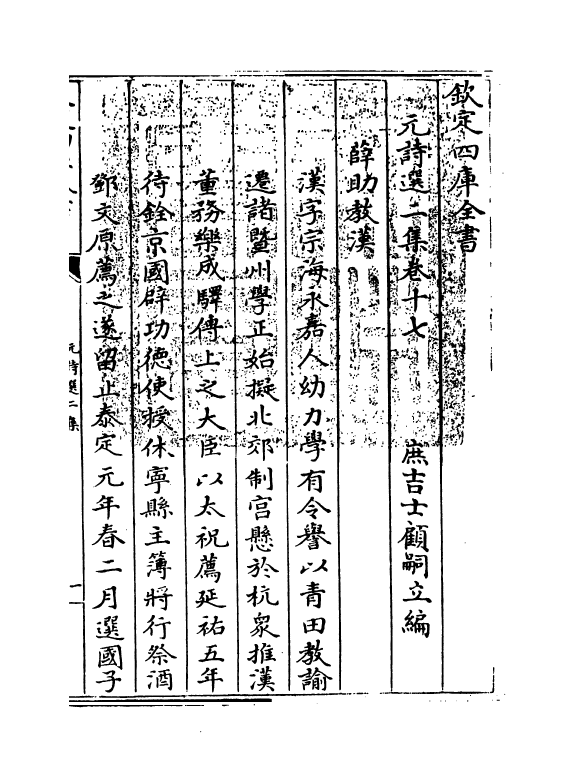 欽定四庫全書
元詩選二集卷十七
庶吉士顧嗣立編
薛助教漢
漢字宗海永嘉人幼力學有令譽以青田教諭
遷諸暨州學正始擬北郊制宫懸於杭衆推漢
董務樂成驛傳上之大臣以太祝薦延祐五年
待銓京國辟功徳使授休寧縣主簿將行祭酒
鄧文原薦之遂留止泰定元年春二月選國子
元詩選二集
一